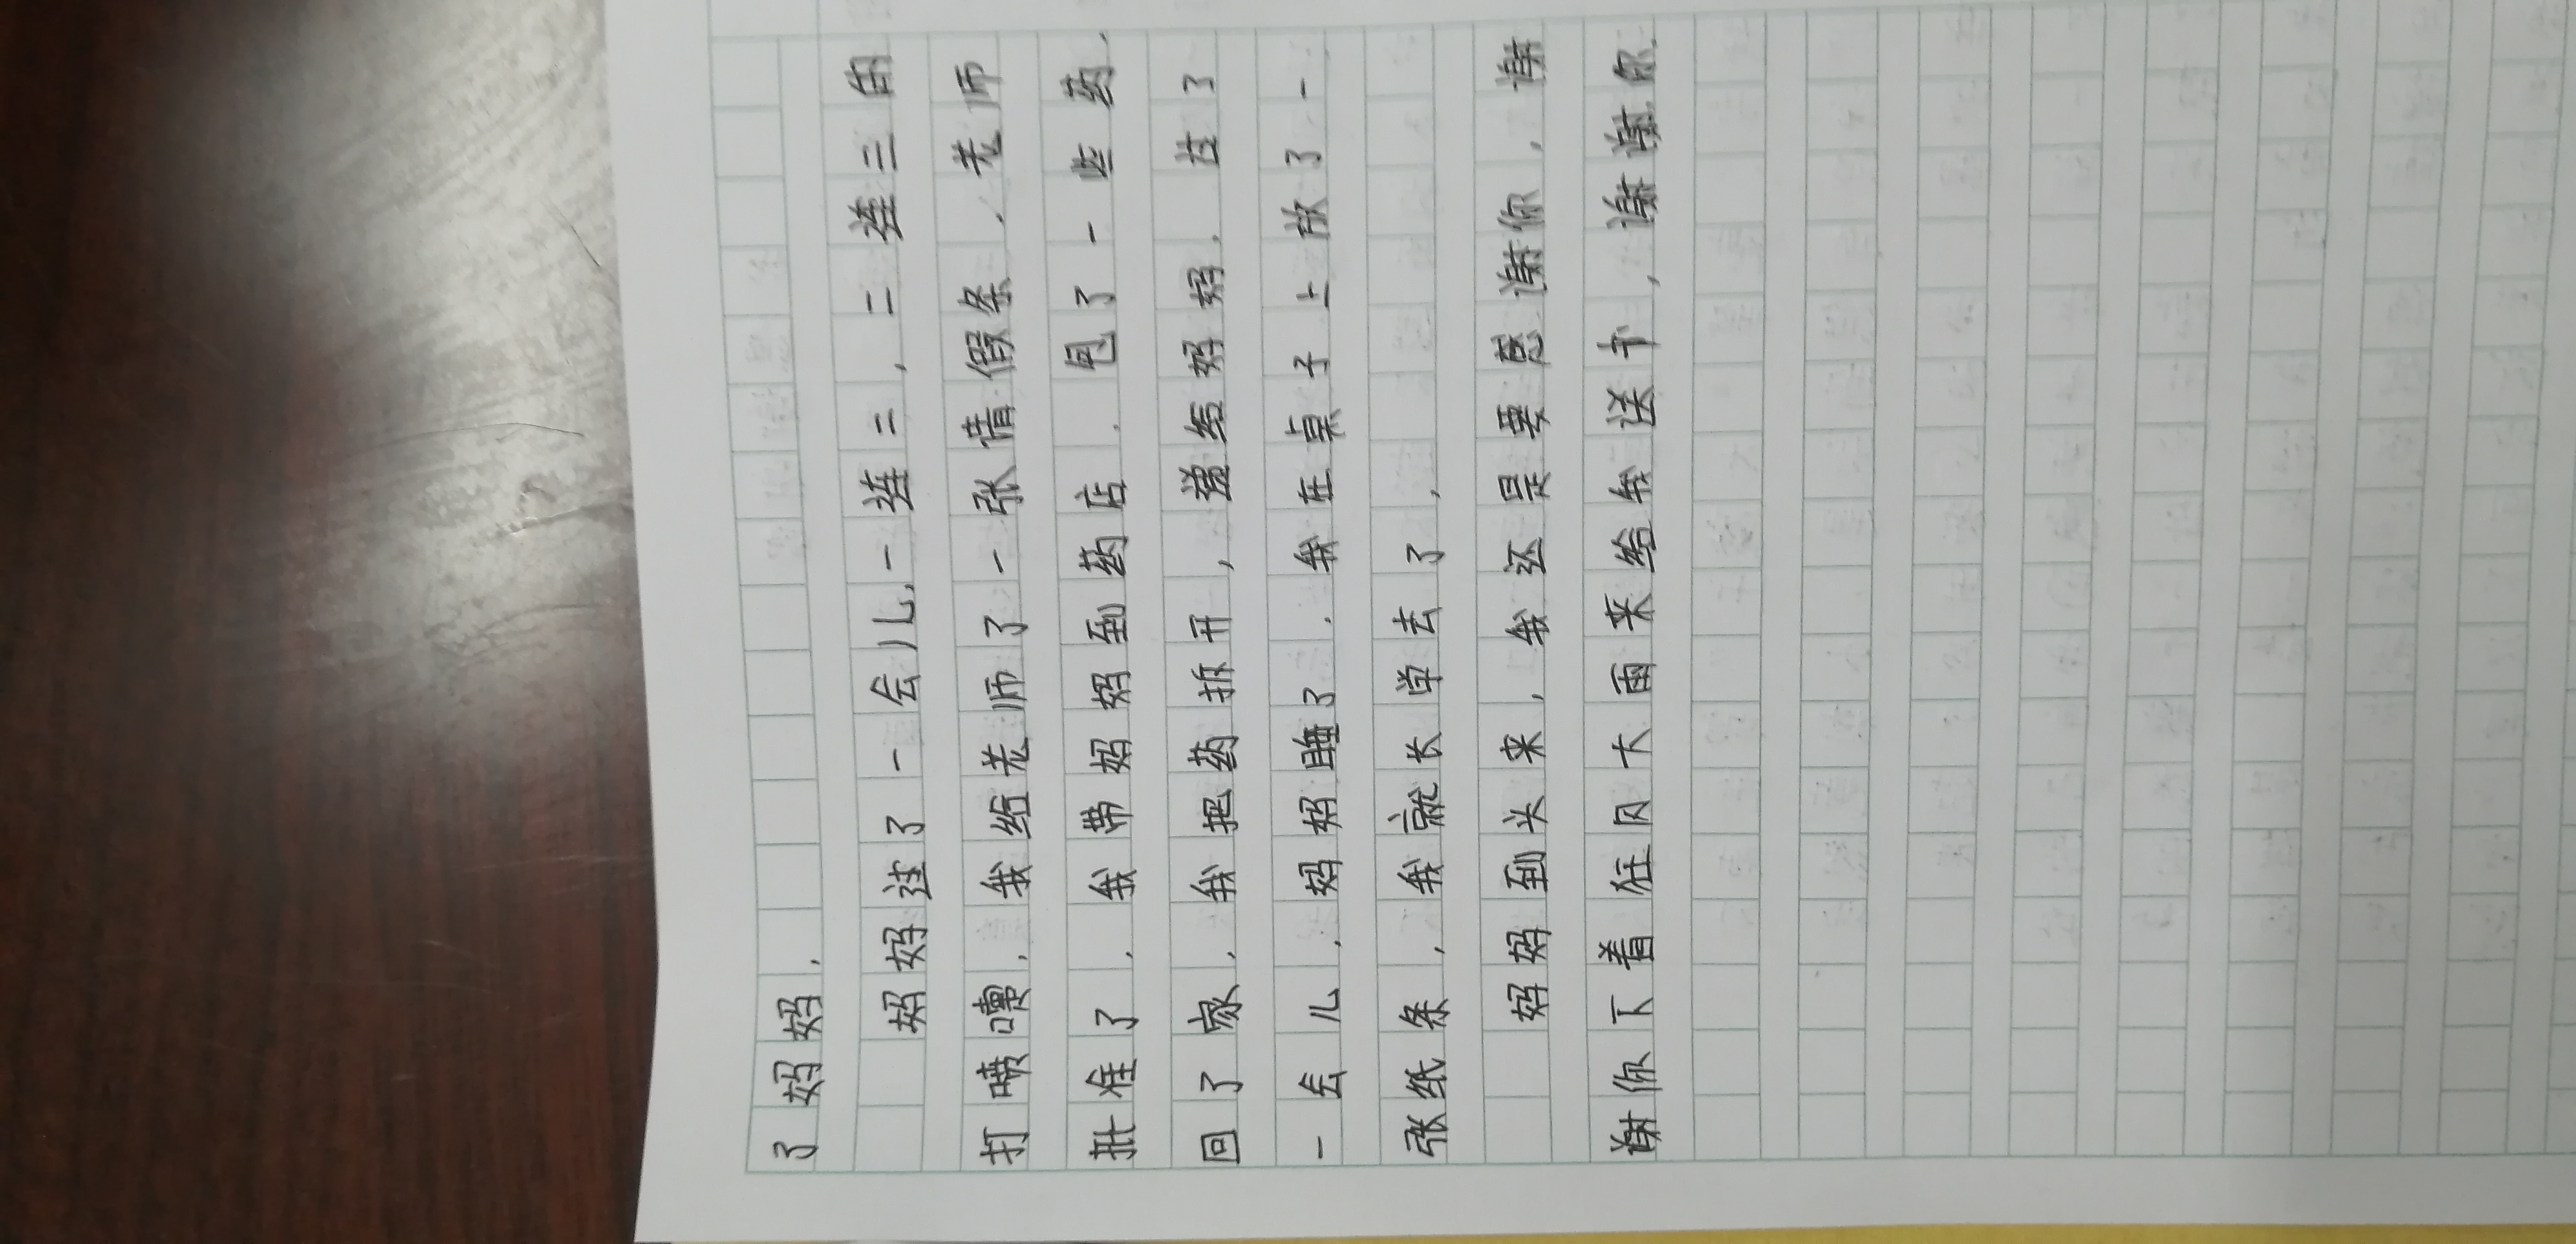 了妈妈。
妈妈过了一会儿，一连二，二连三的
打喷嚏，我给老师了一张请假条，老师
批准了，我带妈妈到药店，包了一些药，
回了家，我把药拆开，递给妈妈，过了
一会儿，妈妈睡了，我在桌子上放了一
张纸条，我就去了，
妈妈到头来，我还是要感谢你，谢
谢你下着狂风大雨来给我送伞，谢谢你